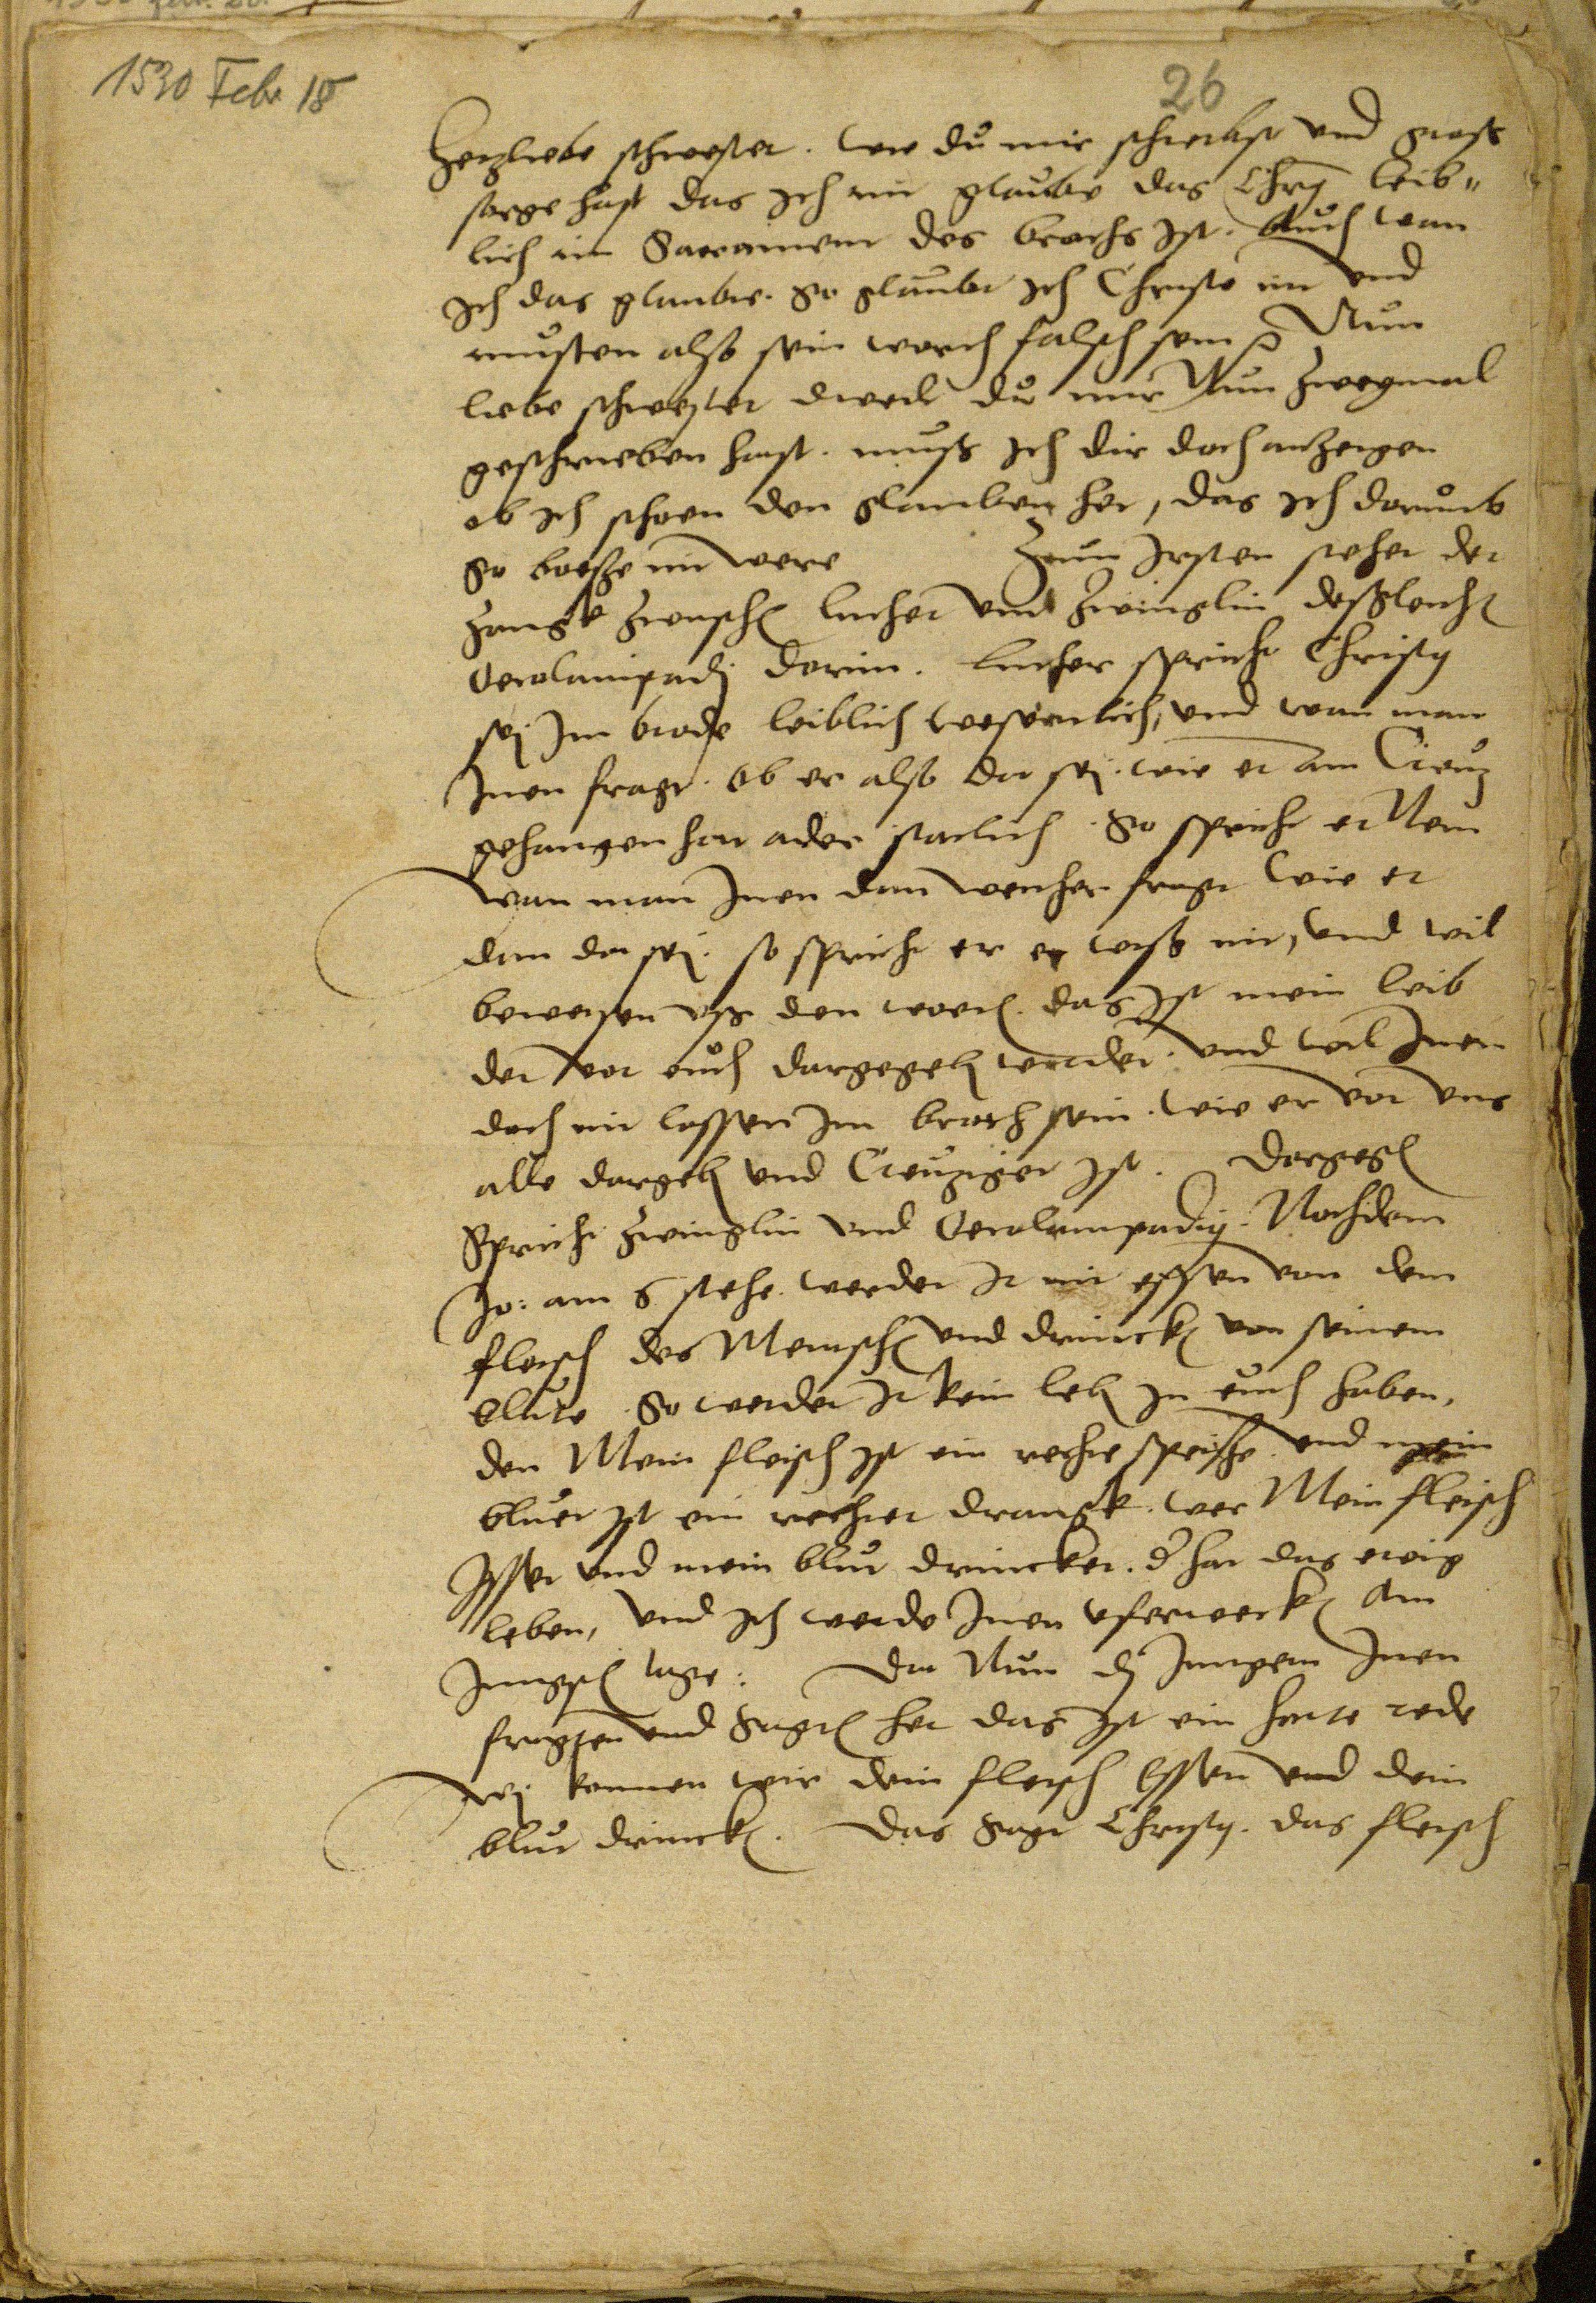 1530 Febr 18
26
Herzliebe schwester. wie du mir schreibst und gross
sorge hast das ich nit glaube das Chrs leib„
lich im Sacrament des brochs ist. Auch wan
ich das glaube. so glaubt ich Christo nit und
musten also sein wort falsch sein Nun
liebe schwester dweil du mir Nun zweymal
geschrieben hast. muss ich dir doch anzeigen
ob ich schoen den glauben het, das ich darumb
so boesse nit were Zum Irsten stehet der
zangk zwusch luther und zwinglin dessgleich
Oecolampadj dorin. Luther spricht Christus
sej Im brode leiblich wesenlich, und wan man
Inen fragt. Ob er also da sej. wie er am Creuz
gehangen hat ader starlich. So spricht er Nein
wan man Inen dan weither fragt wie er
dan da sej. so spricht er er weiss nit, und wil
beweysen uss den wort. das ist mein leib
der vor euch dargegeb wurdet. und wil Inen
doch nit lassen Im broth sein. wie er vor uns
alle dargeb und Creuziget ist. Dargeg
Spricht zwinglin und Oecolampadius. Nachdem
Jo: am 6 stehe. werdet Ir nit essen von dem
fleisch des Mensch und drinck von seinem
blute. So werdet Ir kein leb In euch haben,
den Mein fleisch ist ein rechte speisse. und mein
bluet ist ein rechter drangk. wer Mein fleisch
Isset und mein blut drincket. d hat das ewig
leben, und ich werde Inen uferweck Am
Jungst tage: Da Nun dj Jungern Inen
fragten und Sagt her das ist ein harte rede
wj konnen wir dein fleisch essen und dein
blut drinck. Das sagt Christus. das fleisch